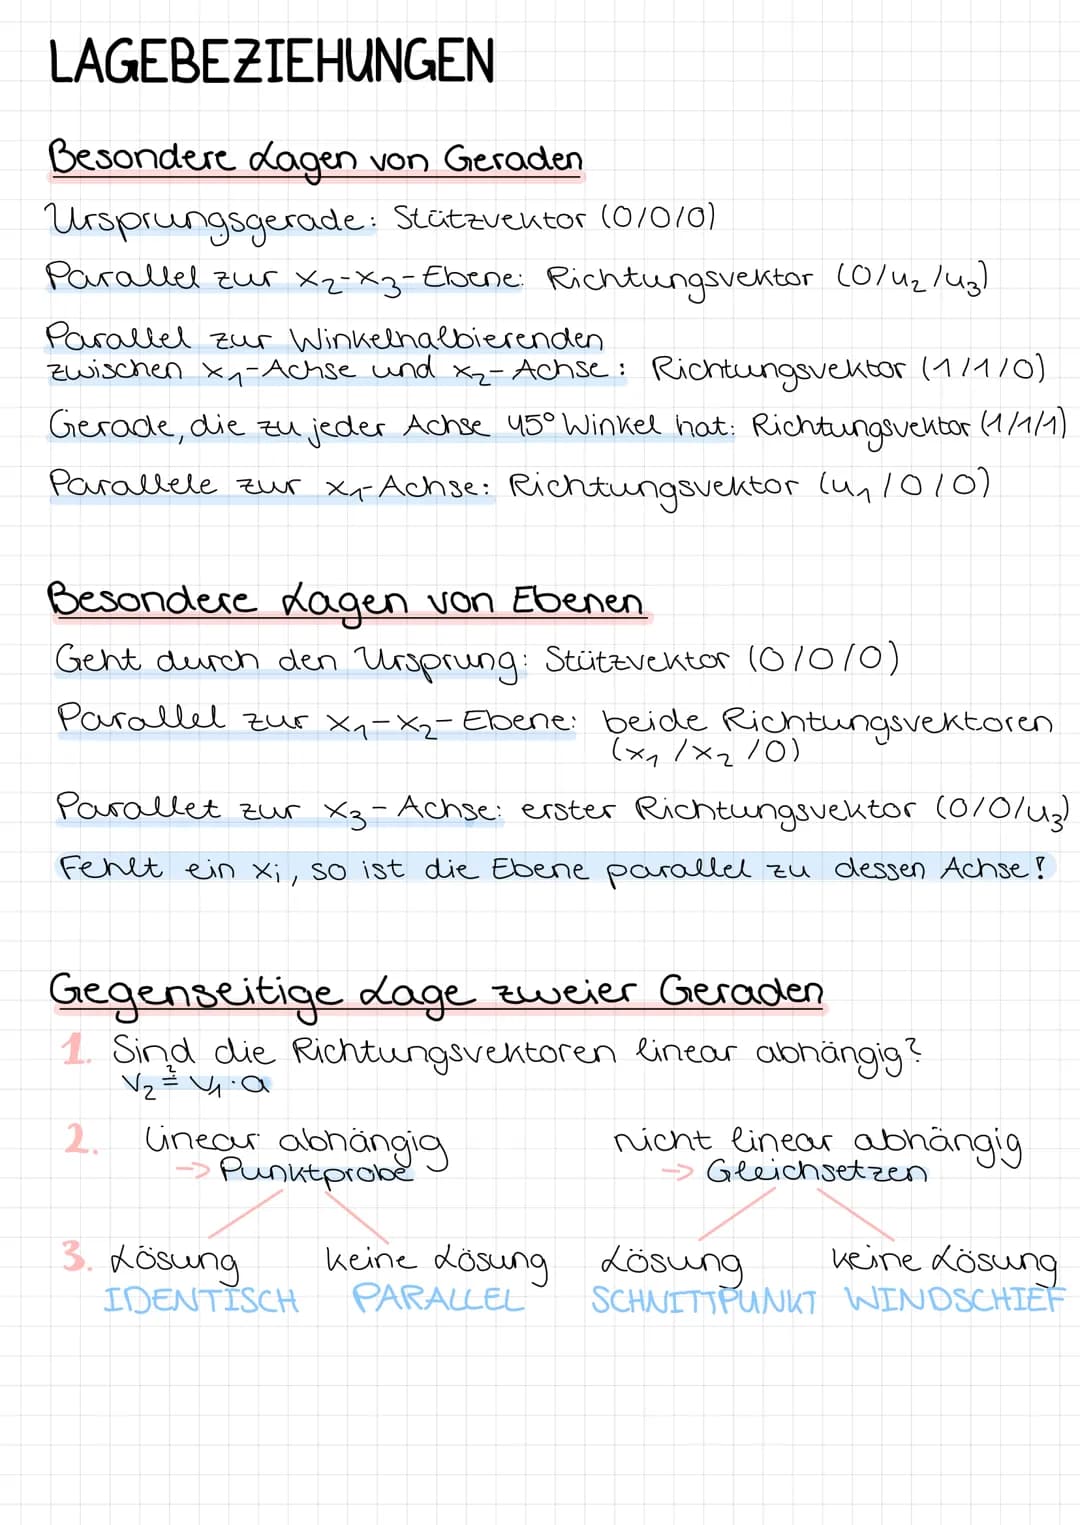 LAGEBEZIEHUNGEN
Besondere Lagen von Geraden
Ursprungsgerade: Stützvektor (0/0/0)
Parallel zur x₂-x₃-Ebene: Richtungsvektor (0/u₂/u₃)
Parallel zur Winkelhalbierenden
zwischen x₁-Achse und x₂-Achse: Richtungsvektor (1/1/0)
Gerade, die zu jeder Achse 45° Winkel hat: Richtungsvektor (1/1/1)
Parallele zur x₁-Achse: Richtungsvektor (u₁/0/0)
Besondere Lagen von Ebenen
Geht durch den Ursprung: Stützvektor (0/0/0)
Parallel zur x₁-x₂-Ebene: beide Richtungsvektoren
(x₁/x₂/0)
Parallet zur x₃-Achse: erster Richtungsvektor (0/0/u₃)
Fehlt ein xᵢ, so ist die Ebene parallel zu dessen Achse!
Gegenseitige Lage zweier Geraden
1. Sind die Richtungsvektoren linear abhängig?
v₂ ≟ v₁·a
2. linear abhängig nicht linear abhängig
-> Punktprobe -> Gleichsetzen
3. Lösung keine Lösung Lösung keine Lösung
IDENTISCH PARALLEL SCHNITTPUNKT WINDSCHIEF